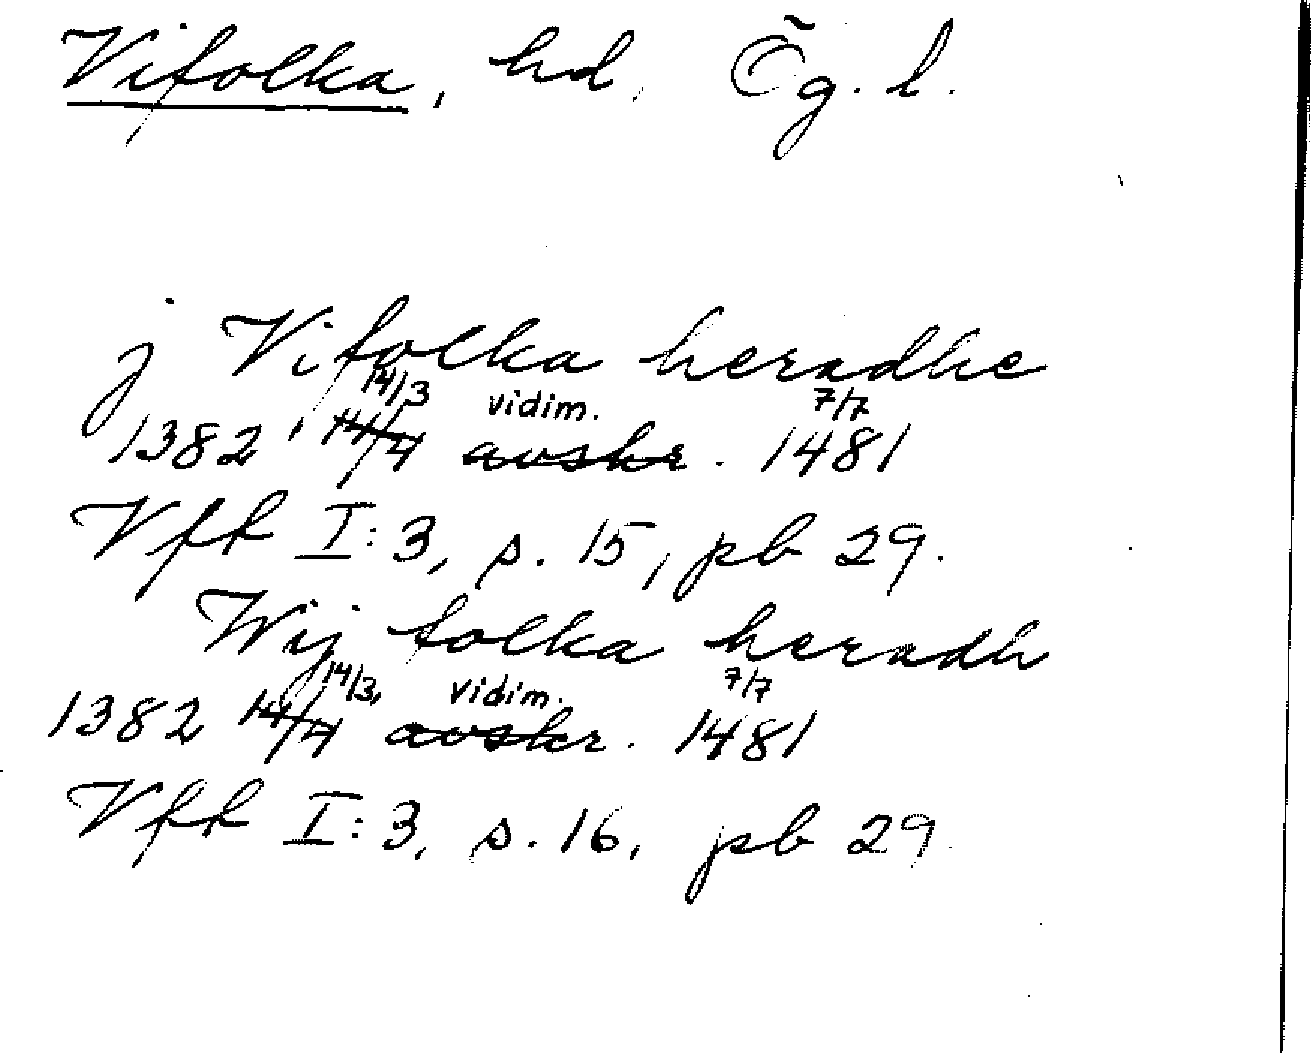 Vifolka, hd, Ög. l.
j Vifolka heradhe
14/3 vidim. 7/7
1382, 14/4 avskr. 1481
Vfk I:3, s. 15, pb 29.
Wij folka heradh
14/3, vidim. 7/7
1382 14/4 avskr. 1481
Vfk I:3, s. 16, pb 29.